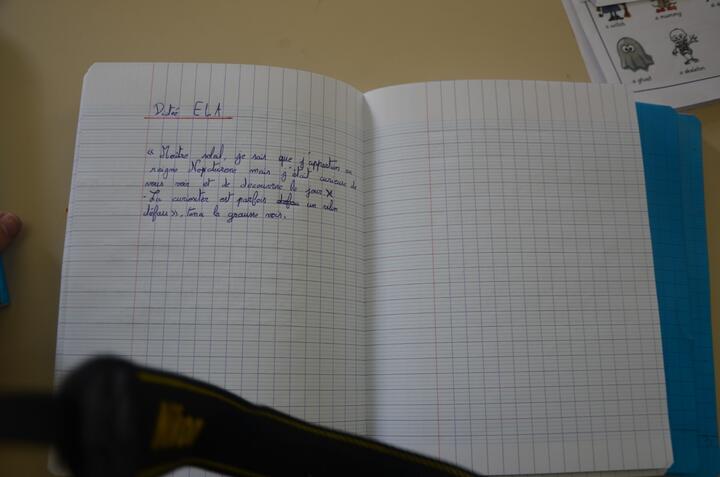 Dictée ELA
« Maître soleil, je sais que j'appartien au
reigne Nopcturene mais j'était curieuse de
vous voir et de découvrire le jour.
- La curiositer est parfois un vilin
défau », tona la grausse vois.
Nikon
a witch
a mummy
a ghost
a skeleton